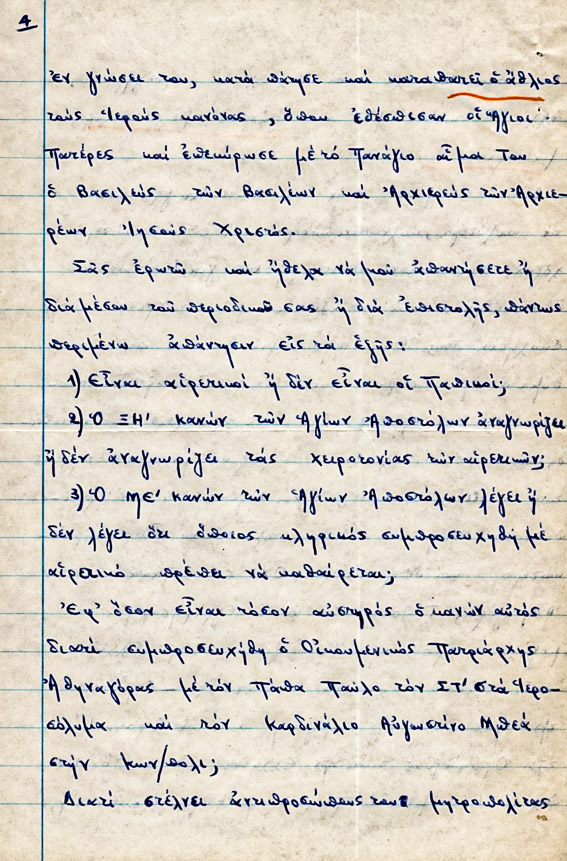 4
ἐν γνώσει του, κατά πάτησε καί καταπατεῖ ὁ ἄθλιος
τούς Ἱερούς κανόνας, ὅπου ἐθέσπισαν οἱ Ἅγιοι
Πατέρες καί ἐπεκύρωσε μέ τό Πανάγιο αἷμα Του
ὁ Βασιλεύς τῶν Βασιλέων καί Ἀρχιερεύς τῶν Ἀρχιε-
ρέων Ἰησοῦς Χριστός.
Σᾶς ἐρωτῶ καί ἤθελα νά μοῦ ἀπαντήσετε ἤ
διά μέσου τοῦ περιοδικοῦ σας ἤ διά ἐπιστολῆς, πάντως
περιμένω ἀπάντησιν εἰς τά ἑξῆς:
1) Εἶναι αἱρετικοί ἤ δέν εἶναι οἱ Παπικοί;
2) Ὁ ΞΗ' κανών τῶν Ἁγίων Ἀποστόλων ἀναγνωρίζει
ἤ δέν ἀναγνωρίζει τάς χειροτονίας τῶν αἱρετικῶν;
3) Ὁ ΜΕ' κανών τῶν Ἁγίων Ἀποστόλων λέγει ἤ
δέν λέγει ὅτι ὅποιος κληρικός συμπροσευχηθῇ μέ
αἱρετικό πρέπει νά καθαίρεται;
Ἐφ' ὅσον εἶναι τόσον αὐστηρός ὁ κανών αὐτός
διατί συμπροσευχήθη ὁ Οἰκουμενικός Πατριάρχης
Ἀθηναγόρας μέ τόν Πάπα Παῦλο τόν ΣΤ' στά Ἱερο-
σόλυμα καί τόν Καρδινάλιο Αὐγουστῖνο Μπεά
στήν Κων/πολι;
Διατί στέλνει ἀντιπροσώπους τους μητροπολίτας